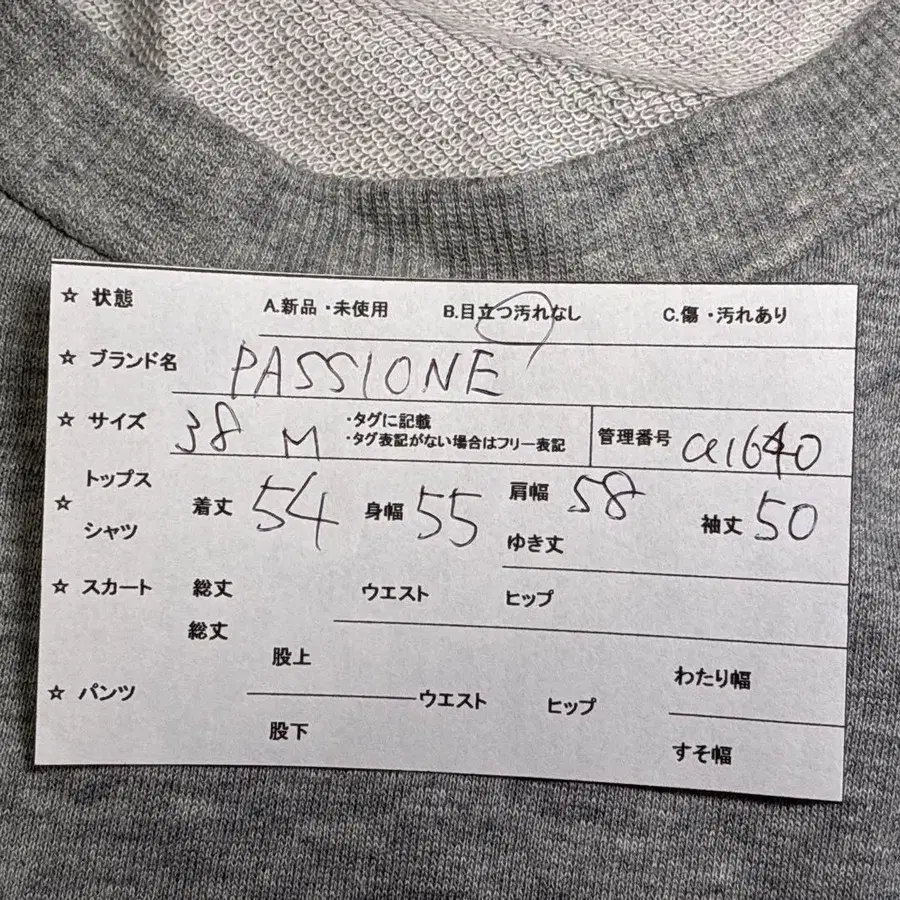 ☆ 状態 A.新品・未使用 B.目立つ汚れなし C.傷・汚れあり
☆ ブランド名 PASSIONE
☆ サイズ 38 M ・タグに記載 ・タグ表記がない場合はフリー表記 管理番号 a1640
☆ トップス シャツ 着丈 54 身幅 55 肩幅 58 ゆき丈 袖丈 50
☆ スカート 総丈 ウエスト ヒップ
☆ パンツ 総丈 股上 股下 ウエスト ヒップ わたり幅 すそ幅